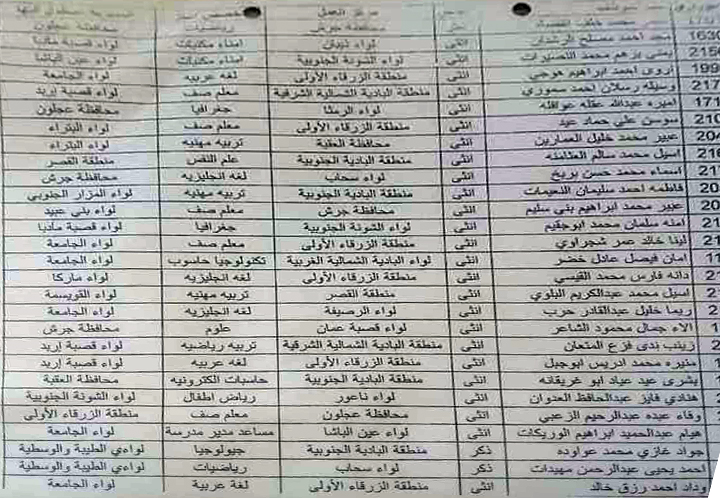 محافظة عجلون
مجد احمد مصلح الرشدان انثى لواء ذيبان امناء مكتبات لواء قصبة مادبا
يمنى برهم محمد النصيرات انثى لواء الشونة الجنوبية امناء مكتبات لواء عين الباشا
اروى احمد ابراهيم هوجي انثى منطقة الزرقاء الأولى لغه عربيه لواء الجامعة
وسيله رسلان احمد سموري انثى منطقة البادية الشمالية الشرقية معلم صف لواء قصبة إربد
اميره عبدالله عقله عوافله انثى لواء الرمثا جغرافيا محافظة عجلون
سوسن علي حماد عيد انثى منطقة الزرقاء الأولى معلم صف لواء البتراء
عبير محمد خليل العمارين انثى محافظة العقبة تربيه مهنيه لواء البتراء
اسيل محمد سالم العثامنه انثى منطقة البادية الجنوبية علم النفس منطقة القصر
اسماء محمد حسن بريخ انثى لواء سحاب لغه انجليزيه محافظة جرش
فاطمه احمد سليمان النعيمات انثى منطقة البادية الجنوبية تربيه مهنيه لواء المزار الجنوبي
عبير محمد ابراهيم بني سليم انثى محافظة جرش معلم صف لواء بني عبيد
امنه سلمان محمد ابوجقيم انثى لواء الشونة الجنوبية جغرافيا لواء قصبة مادبا
لينا خالد عمر شجراوي انثى منطقة الزرقاء الأولى معلم صف لواء الجامعة
امان فيصل عادل خضر انثى لواء البادية الشمالية الغربية تكنولوجيا حاسوب لواء الجامعة
دانه فارس محمد القيسي انثى منطقة الزرقاء الأولى لغه انجليزيه لواء ماركا
اسيل محمد عبدالكريم البلوي انثى منطقة القصر تربيه مهنيه لواء القويسمة
ريما خليل عبدالقادر حرب انثى لواء الرصيفة لغه انجليزيه لواء الجامعة
الاء جمال محمود الشاعر انثى لواء قصبة عمان علوم محافظة جرش
زينب ندى فزع المتعان انثى منطقة البادية الشمالية الشرقية تربيه رياضيه لواء قصبة إربد
منيره محمد ادريس ابوجبل انثى منطقة الزرقاء الأولى لغه عربيه لواء قصبة إربد
بشرى عيد عياد ابو غريقانه انثى منطقة البادية الجنوبية حاسبات الكترونيه محافظة العقبة
هنادي فايز عبدالحافظ العدوان انثى لواء ناعور رياض اطفال لواء الشونة الجنوبية
وفاء عبده عبدالرحيم الزعبي انثى محافظة عجلون معلم صف منطقة الزرقاء الأولى
هيام عبدالحميد ابراهيم الوريكات انثى لواء عين الباشا مساعد مدير مدرسة لواء الجامعة
جواد غازي محمد عواوده ذكر منطقة البادية الجنوبية جيولوجيا لواءي الطيبة والوسطية
احمد يحيى عبدالرحمن مهيدات ذكر لواء سحاب رياضيات لواءي الطيبة والوسطية
وداد احمد رزق خالد انثى منطقة الزرقاء الأولى لغه عربية لواء الجامعة